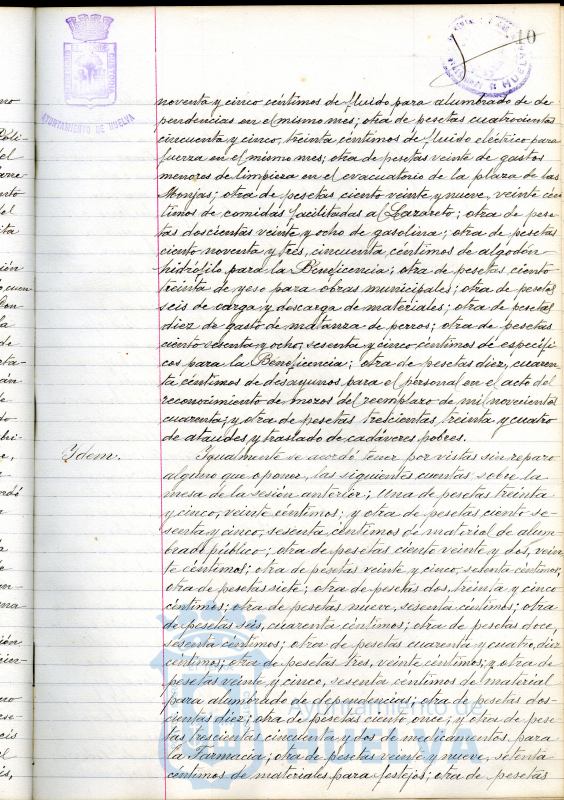 10
AYUNTAMIENTO DE HUELVA
noventa y cinco céntimos de fluido para alumbrado de de-
pendencias en el mismo mes; otra de pesetas cuatrocientas
cincuenta y cinco, treinta céntimos de fluido eléctrico para
fuerza en el mismo mes; otra de pesetas veinte de gastos
menores de limpieza en el evacuatorio de la plaza de las
Monjas; otra de pesetas ciento veinte y nueve, veinte cén-
timos de comidas facilitadas al Lazareto; otra de pese-
tas doscientas veinte y ocho de gasolina; otra de pesetas
ciento noventa y tres, cincuenta céntimos de algodón
hidrófilo para la Beneficencia; otra de pesetas ciento
treinta de yeso para obras municipales; otra de pesetas
seis de carga y descarga de materiales; otra de pesetas
diez de gasto de matanza de perros; otra de pesetas
ciento sesenta y ocho, sesenta y cinco céntimos de específi-
cos para la Beneficencia; otra de pesetas diez, cuaren-
ta céntimos de desayunos para el personal en el acto del
reconocimiento de mozos del reemplazo de mil novecientos
cuarenta; y otra de pesetas trescientas, treinta y cuatro
de ataudes y traslado de cadáveres pobres.
Idem. Igualmente se acordó tener por vistas sin reparo
alguno que oponer, las siguientes cuentas sobre la
mesa de la sesión anterior; Una de pesetas treinta
y cinco, veinte céntimos; y otra de pesetas ciento se-
senta y cinco, sesenta céntimos de material de alum-
brado público; otra de pesetas ciento veinte y dos, vein-
te céntimos; otra de pesetas veinte y cinco, setenta céntimos;
otra de pesetas siete; otra de pesetas dos, treinta y cinco
céntimos; otra de pesetas nueve, sesenta céntimos; otra
de pesetas seis, cuarenta céntimos; otra de pesetas doce,
sesenta céntimos; otra de pesetas cuarenta y cuatro, diez
céntimos; otra de pesetas tres, veinte céntimos; y otra de
pesetas veinte y cinco, sesenta céntimos de material
para alumbrado de dependencias; otra de pesetas dos-
cientas diez; otra de pesetas ciento once; y otra de pese-
tas trescientas cincuenta y dos de medicamentos para
la Farmacia; otra de pesetas veinte y nueve, setenta
céntimos de materiales para festejos; otra de pesetas
Ayuntamiento de
HUELVA